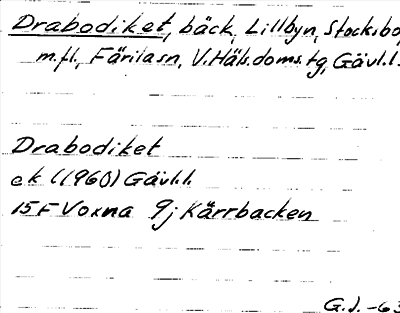 Drabodiket, bäck, Lillbyn, Stocksbo,
m.fl., Färila sn, V. Häls. doms. tg, Gävl.l.
Drabodiket
ek (1960) Gävl.l.
15F Voxna 9j Kärrbacken
G.J. -63